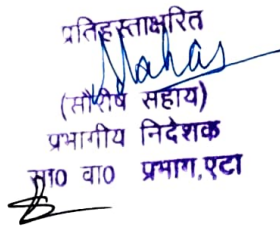 प्रतिहस्ताक्षरित
(सौरीष सहाय)
प्रभागीय निदेशक
सा0 वा0 प्रभाग,एटा